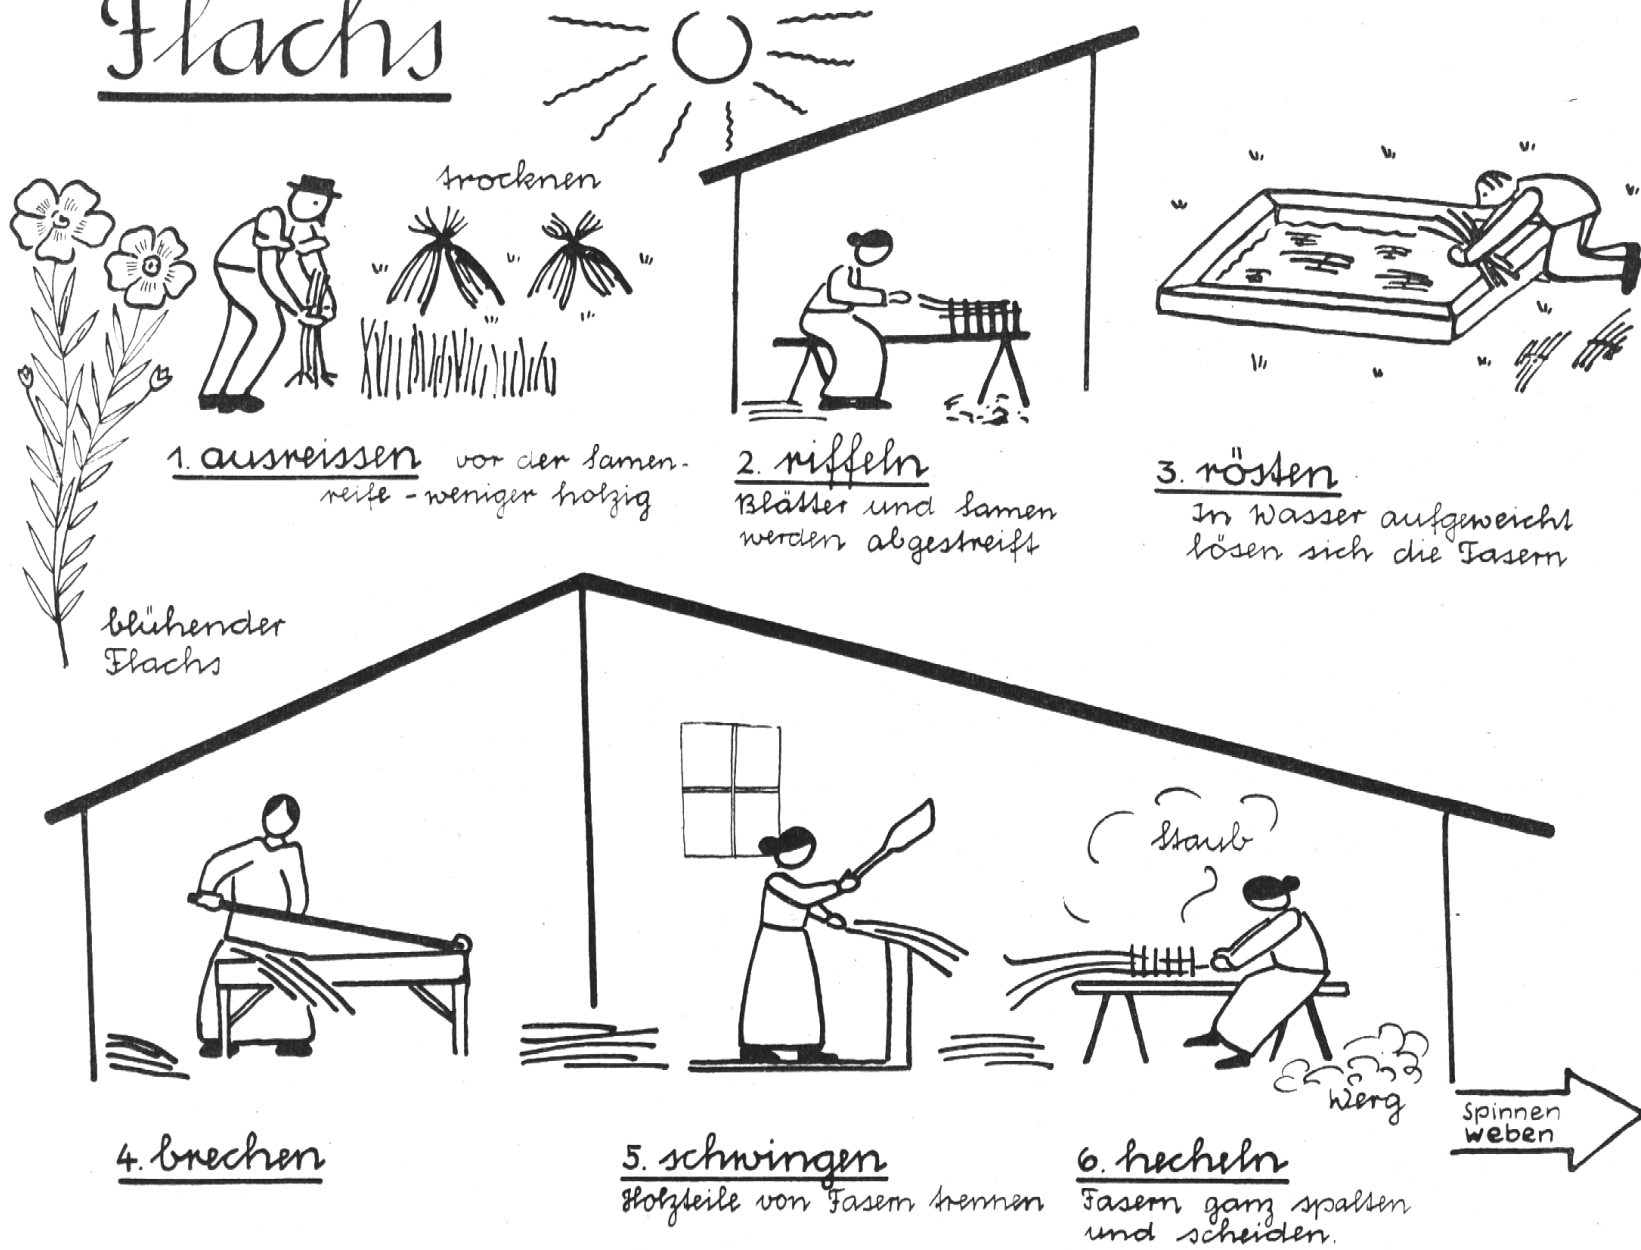 Flachs
trocknen
1. ausreissen vor der Samen-
reife - weniger holzig
2. riffeln
Blätter und Samen
werden abgestreift
3. rösten
In Wasser aufgeweicht
lösen sich die Fasern
blühender
Flachs
Staub
Werg
spinnen
weben
4. brechen
5. schwingen
Holzteile von Fasern trennen
6. hecheln
Fasern ganz spalten
und scheiden.